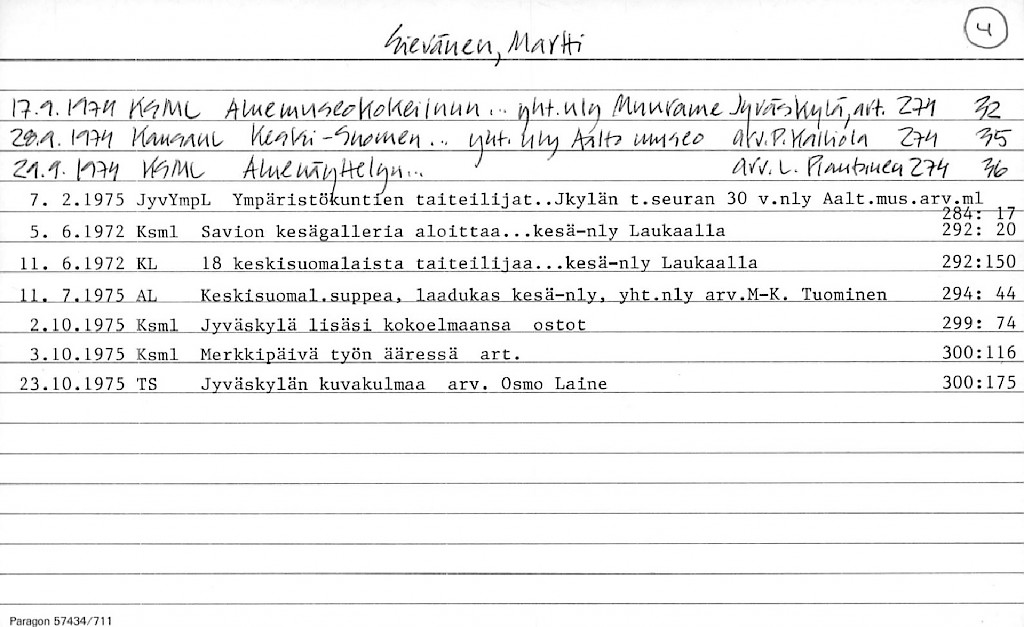 4
Sievänen, Martti
17.9.1974 KSML Aluemuseokokeilnun... yht.nly Muurame Jyväskylä, art. 274 32
28.9.1974 KansanL Keski-Suomen... yht. nly Aalto museo arv. P. Kalliola 274 35
29.9.1974 KSML Aluenäyttelyn... arv. L. Plautinen 274 36
7. 2.1975 JyvYmpL Ympäristökuntien taiteilijat..Jkylän t.seuran 30 v.nly Aalt.mus.arv.ml
284: 17
5. 6.1972 Ksml Savion kesägalleria aloittaa...kesä-nly Laukaalla 292: 20
11. 6.1972 KL 18 keskisuomalaista taiteilijaa...kesä-nly Laukaalla 292:150
11. 7.1975 AL Keskisuomal.suppea, laadukas kesä-nly, yht.nly arv.M-K. Tuominen 294: 44
2.10.1975 Ksml Jyväskylä lisäsi kokoelmaansa ostot 299: 74
3.10.1975 Ksml Merkkipäivä työn ääressä art. 300:116
23.10.1975 TS Jyväskylän kuvakulmaa arv. Osmo Laine 300:175
Paragon 57434/711